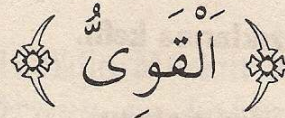 اَلْقَوِىُّ